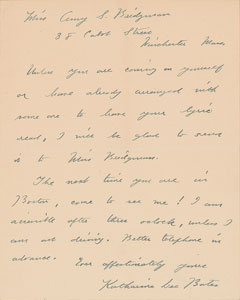 Miss Amy S. Bridgman
38 Cabot Street
Winchester Mass
Unless you are coming in yourself
or have already arranged with
some one to have your lyric
read, I will be glad to
it to Miss Bridgman.
The next time you are in
Boston, come to see me! I am
accessible after three o'clock, unless I
am out driving. Better telephone in
advance.
Ever affectionately yours
Katharine Lee Bates